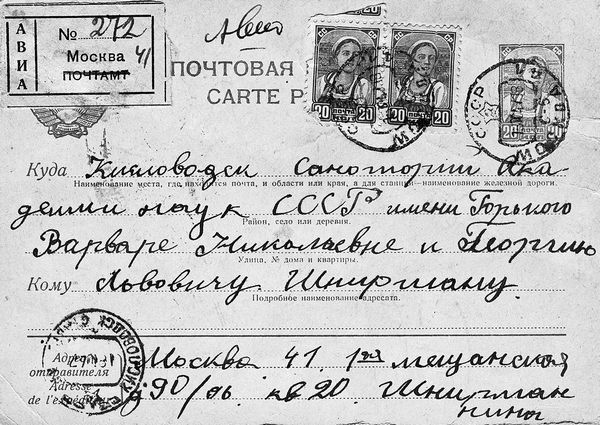 АВИА
№ 272
Москва 41
ПОЧТАМТ
Авио
ПОЧТОВАЯ
CARTE P
20 20
20 20
20
СССР
МОСКВА
Куда Кисловодск санатории Ака
Наименование места, где находится почта, и области или края, а для станций—наименование железной дороги.
демии наук СССР имени Горького
Район, село или деревня.
Варваре Николаевне и Георгию
Улица, № дома и квартиры.
Кому Львовичу Шнирману.
Подробное наименование адресата.
КИСЛОВОДСК
Адрес отправителя Москва 41 1ая мещанская
Adresse de l'expéditeur д 90/ кв 20 Шнирман
нины